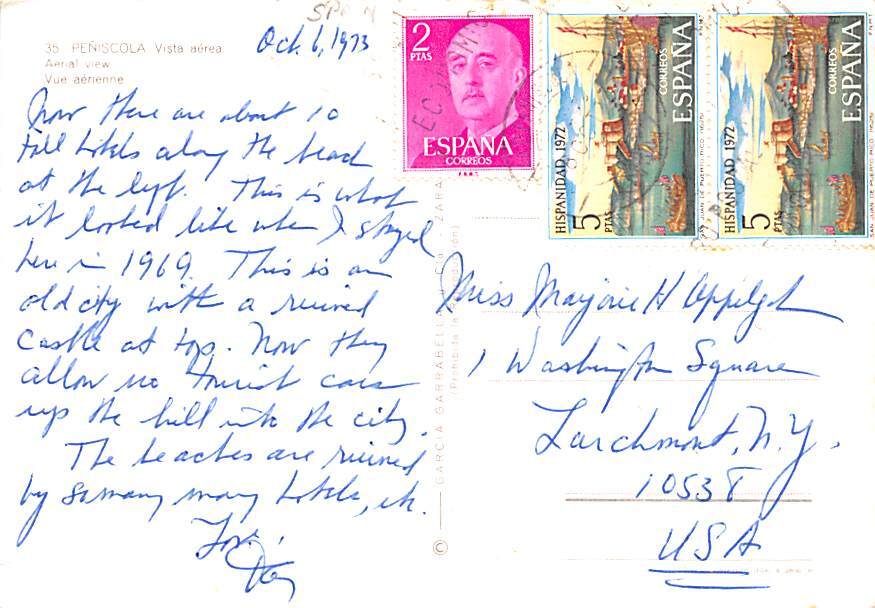 SPAIN
35 PEÑISCOLA Vista aérea
Aerial view
Vue aérienne
Oct. 6, 1973
Now there are about 10
tall hotels along the beach
at the left. This is what
it looked like when I stayed
here in 1969. This is an
old city with a ruined
castle at top. Now they
allow no tourist cars
up the hill into the city.
The beaches are ruined
by so many many hotels, etc.
Love,
2
PTAS
ESPAÑA
CORREOS
HISPANIDAD 1972
5
PTAS
CORREOS
ESPAÑA
SAN JUAN DE PUERTO RICO
HISPANIDAD 1972
5
PTAS
CORREOS
ESPAÑA
SAN JUAN DE PUERTO RICO
© GARCIA GARRABELLA Y Cia
(Prohibida la
Miss Marjorie H
1 Washington Square
Larchmont, N.Y.
10538
USA